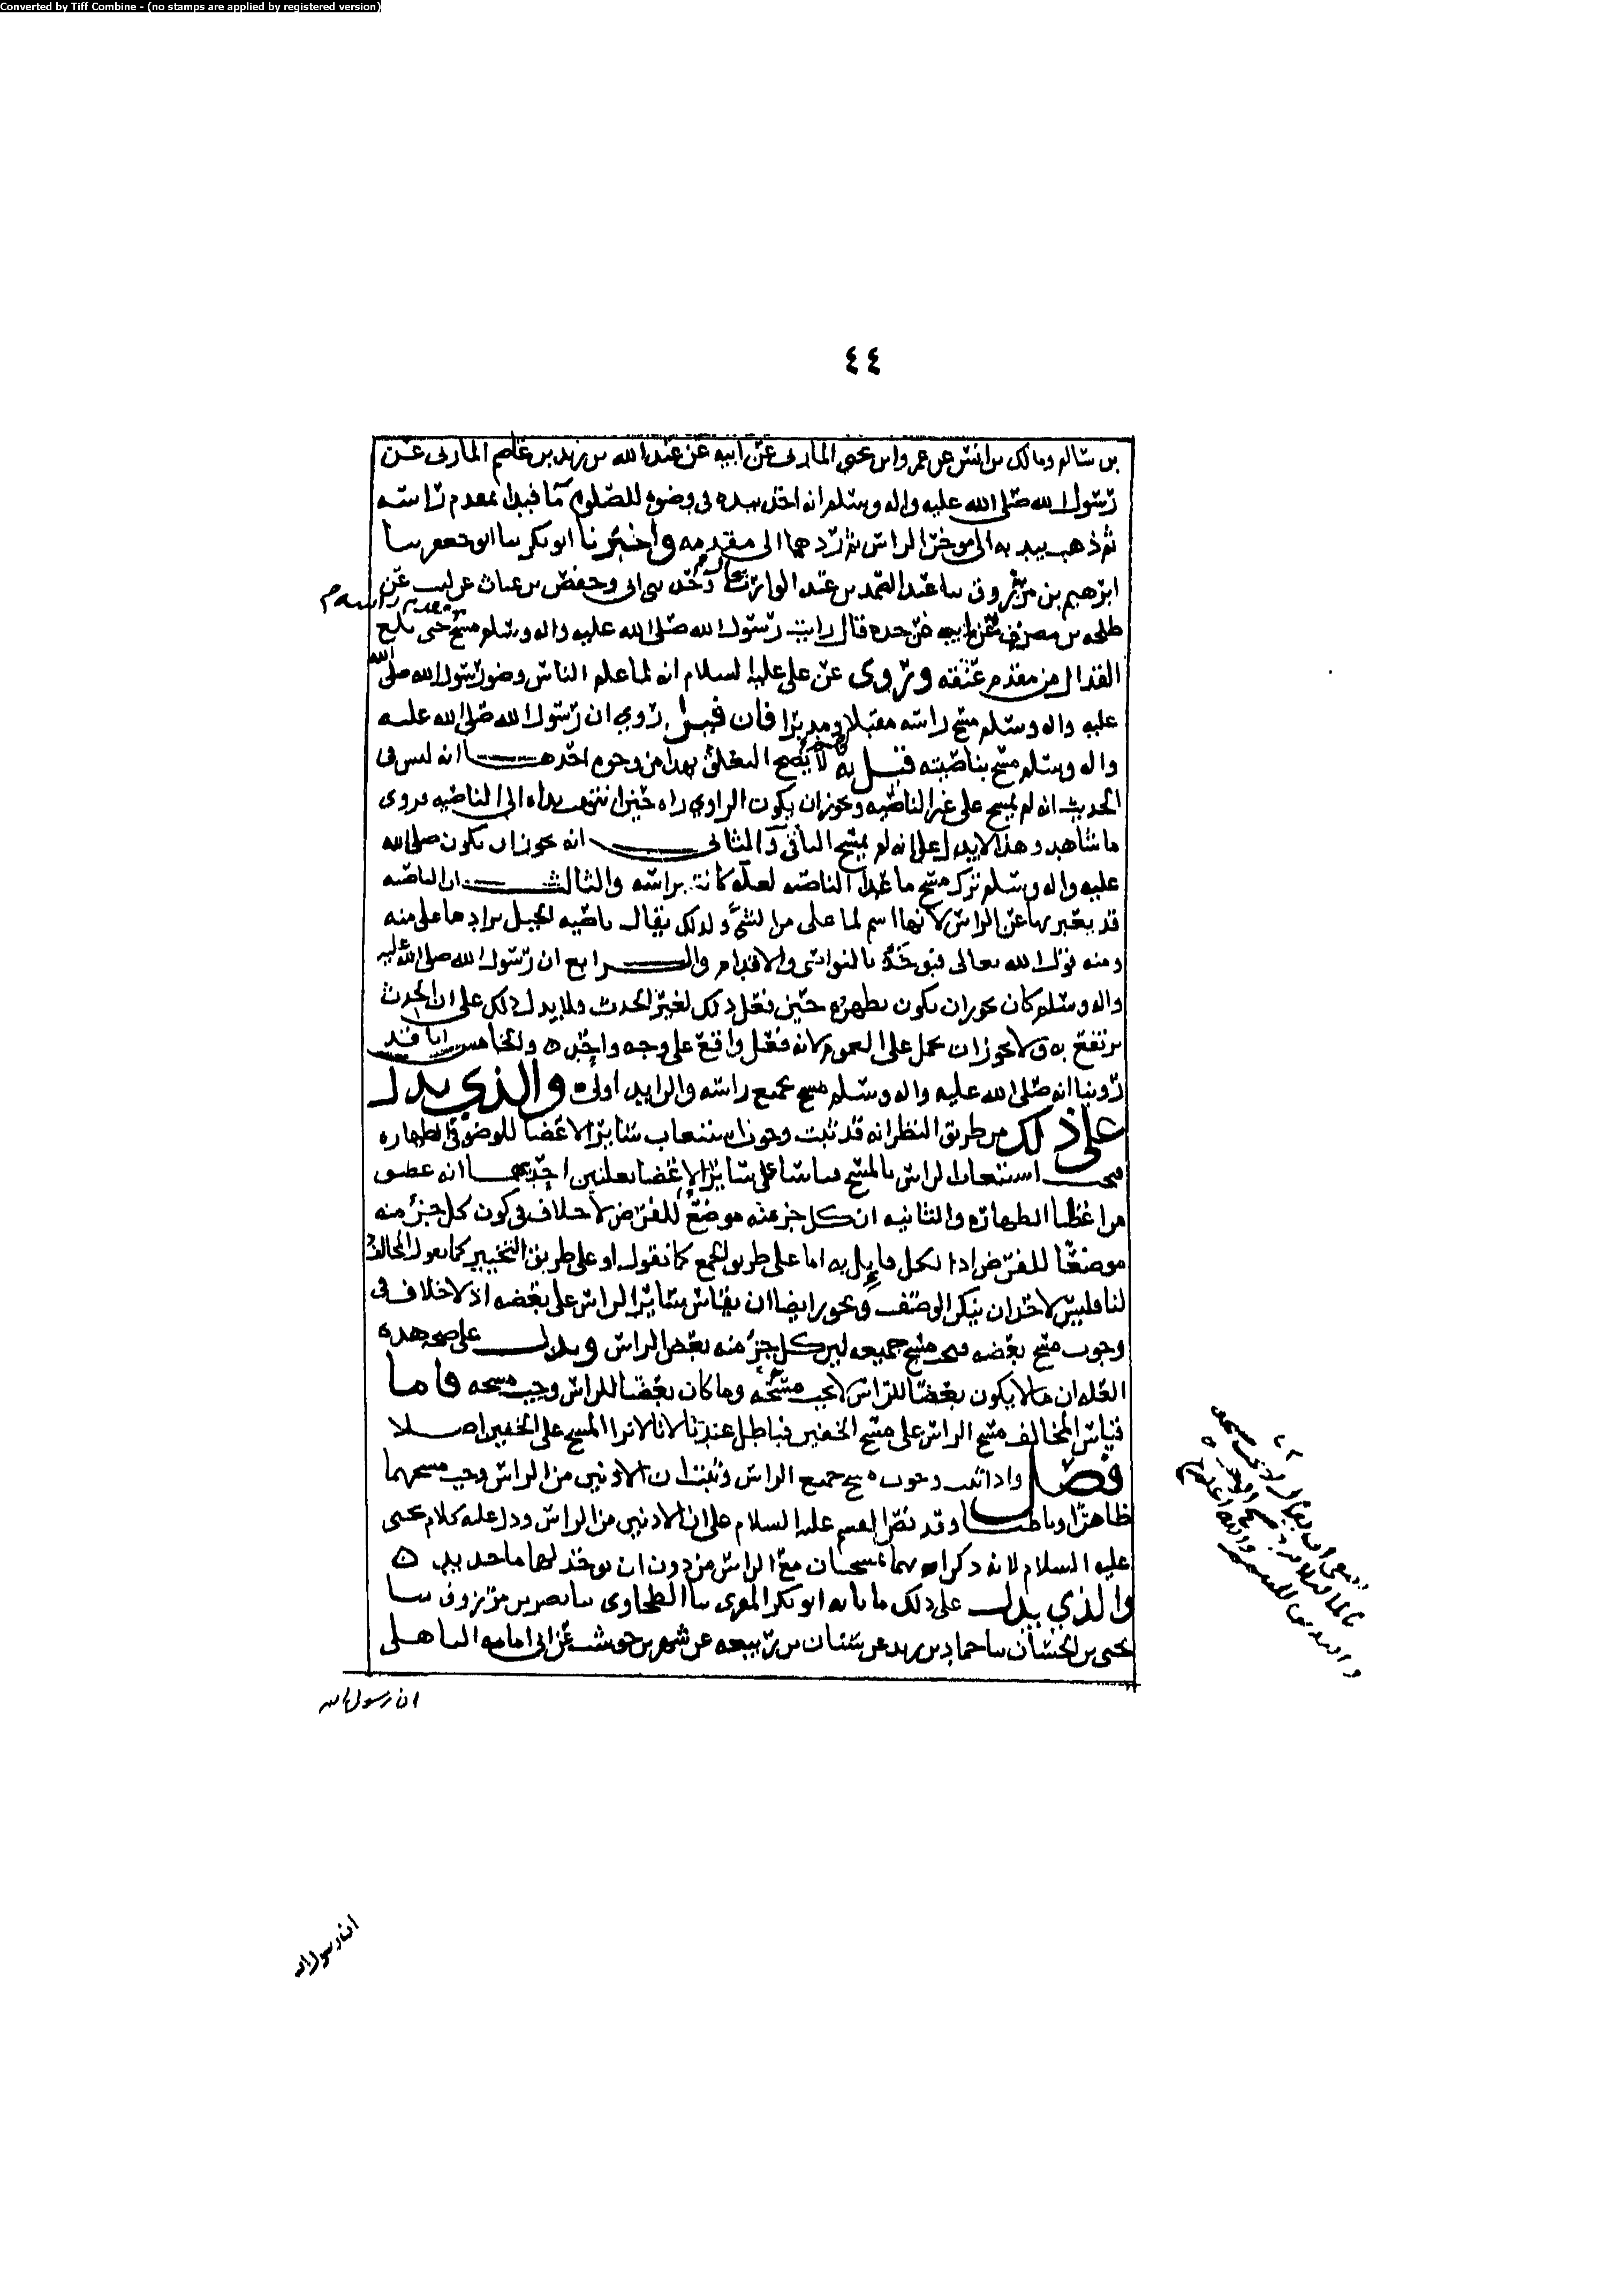 Converted by Tiff Combine - (no stamps are applied by registered version)
٤٤
بن سالم ومالك بن انس عن عمرو ابن يحيى المازني عن ابيه عن عبد الله بن زيد بن عاصم المازني عن
رسول الله صلى الله عليه واله وسلم انه اخذ بيده في وضوه للصلوه ما فبدا بمقدم راسه
ثم ذهب بيديه الى موخر الراس ثم ردهما الى مقدمه واخبرنا ابو بكر سا ابو جعفر سا
ابرهيم بن مرزوق سا عبد الصمد بن عبد الوارث سا ابي وحفص بن غياث عن ليث عن
طلحه بن مصرف عن ابيه عن جده قال رايت رسول الله صلى الله عليه واله وسلم مسح حتى بلغ
مقدم راسه
القذال من مقدم عنقه وروى عن علي عليه السلام انه لما علم الناس وضو رسول الله صلى الله
عليه واله وسلم مسح راسه مقبلا ومدبرا فان قيل روي ان رسول الله صلى الله عليه
واله وسلم مسح بناصيته قيل له لا يصح التعلق بهذا من وجوه احدها انه ليس في
الحديث انه لم يمسح على غير الناصيه ويجوز ان يكون الراوي راه حين انتهت يداه الى الناصيه فروى
ما شاهد وهذا لا يدل على انه لم يمسح الباقي والثاني انه يجوز ان يكون صلى الله
عليه واله وسلم ترك مسح ما عدا الناصيه لعله كانت براسه والثالث ان الناصيه
قد يعبر بها عن الراس لانها اسم لما على من الشي ولذلك يقال ناصيه الجبل يراد ما على منه
ومنه قول الله تعالى فيوخذ بالنواصي والاقدام والرابع ان رسول الله صلى الله عليه
واله وسلم كان يجوز ان يكون بطهره حين فعل ذلك لغير الحدث ولا يدل ذلك على ان الحدث
يرتفع به ولا يجوز ان يحمل على العموم لانه فعل واقع على وجه واحد ه والخامس انا قد
روينا انه صلى الله عليه واله وسلم مسح بجميع راسه والزايد اولى ه والذي يدل
على ذلك من طريق النظر انه قد ثبت وجوب استيعاب سائر الاعضا للوضو في الطهاره
فيجب استيعاب الراس بالمسح قياسا على سائر الاعضا بعلتين احديهما انه عضو
من اعضا الطهاره والثانيه ان كل جز منه موضع للفرض لا خلاف في كون كل جز منه
موضعا للفرض اذ الكل قايل به اما على طريق الجمع كما نقول او على طريق التخيير كما يقول المخالف
لنا فليس لاحد ان ينكر الوصف ويجوز ايضا ان يقاس سائر الراس على بعضه اذ لا خلاف في
وجوب مسح بعضه فيجب مسح جميعه ليس كل جز منه بعض الراس ويدل على صحه هذه
العله ان ما لا يكون بعضا للراس لا يجب مسحه وما كان بعضا للراس وجب مسحه فاما
قياس المخالف مسح الراس على مسح الخفين فباطل عندنا لانا لا نرا المسح على الخفين اصلا
فصل واذا ثبت وجوب مسح جميع الراس وثبت ان الاذنين من الراس وجب مسحهما
ظاهرا وباطنا وقد نص القسم عليه السلام على ان الاذنين من الراس ودل عليه كلام يحيى
عليه السلام لانه ذكر انهما يمسحان مع الراس من دون ان يوخذ لهما ما جديد ه
والذي يدل على ذلك ما نابه ابو بكر المقري سا الطحاوي سا نصر بن مرزوق سا
يحيى بن الحسان سا حماد بن زيد عن سنان بن ربيعه عن شهر بن حوشب عن ابي امامه الباهلي
ان رسول الله
ان رسول الله